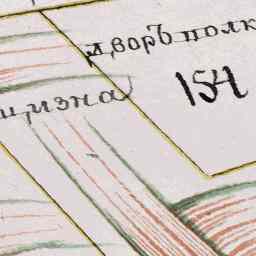 дворъ полк
154
щизна